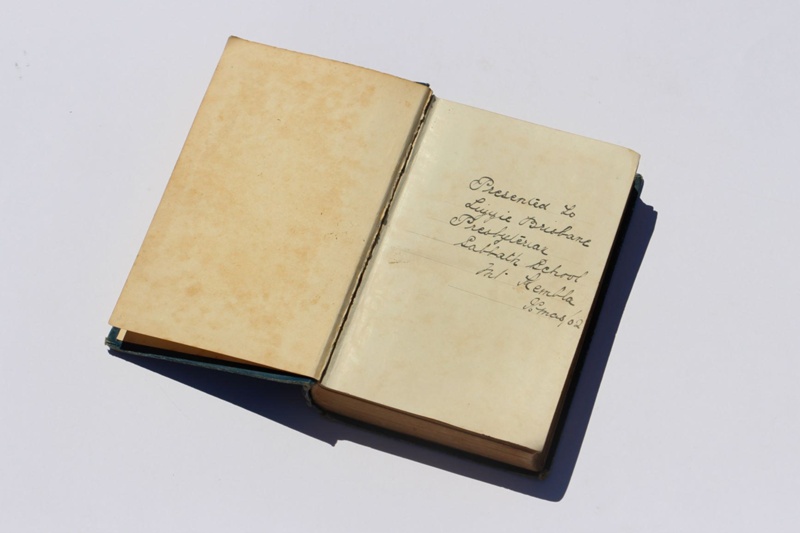 Presented to
Lizzie Brisbane
Presbyteriae
Sabbath School
Mt Kembla
Xmas, 02